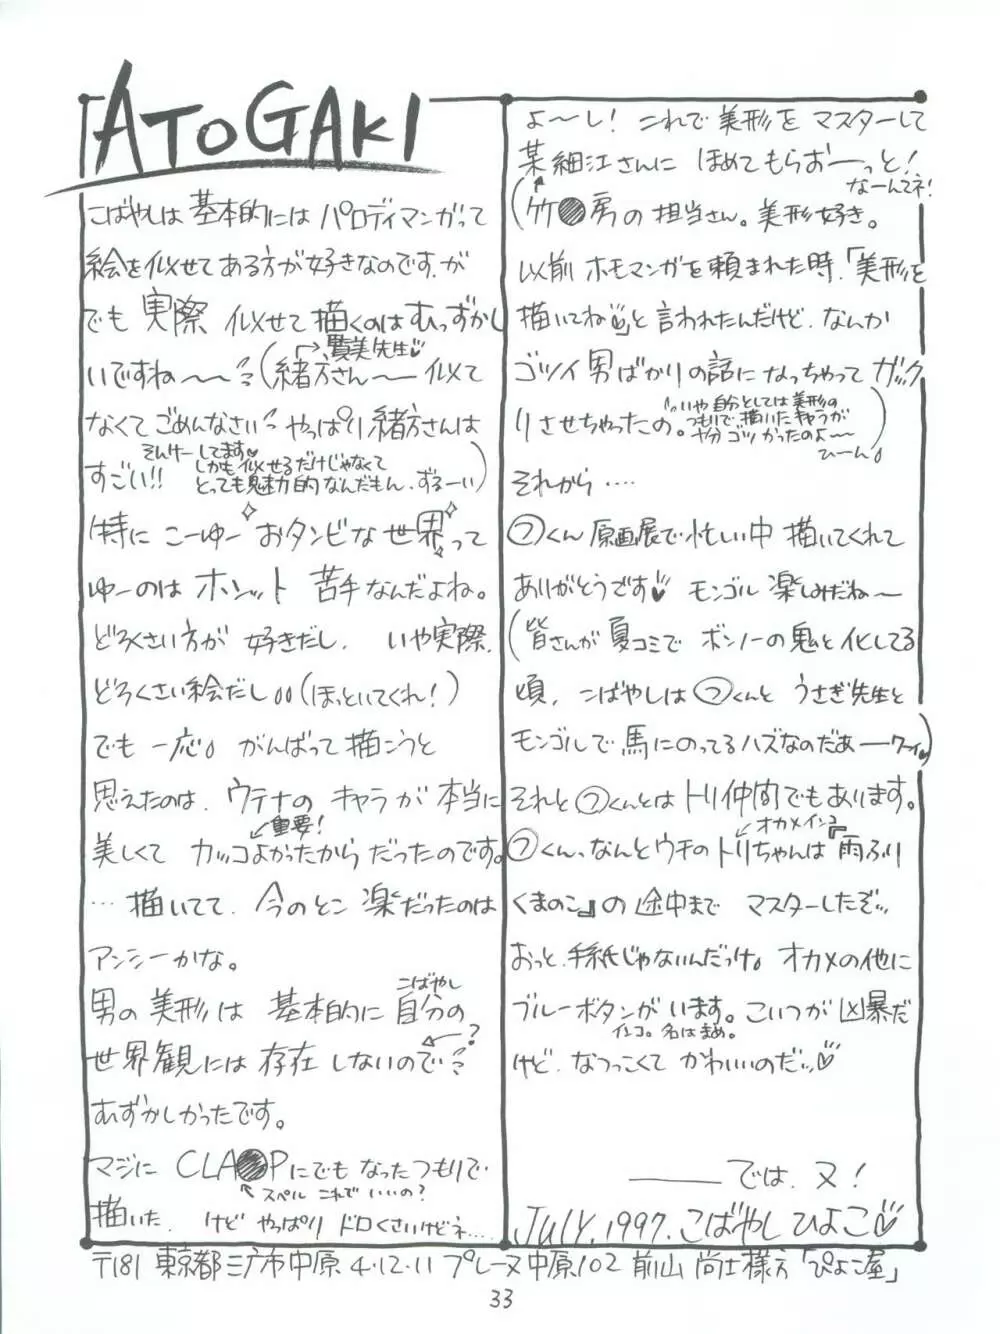 ATOGAKI
こばやしは基本的にはパロディマンガって
絵を似せてある方が好きなのですが
でも 実際 似せて描くのはむっずかし
いですね〜〜(緒方さん〜似て
→賢美先生♡
なくてごめんなさい やっぱり緒方さんは
すごい!!
そんけーしてます♡
しかも似せるだけじゃなくて
とっても魅力的なんだもん、ずるーい)
特に こーゆー おタンビな世界って
ゆーのは ホント 苦手なんだよね。
どろくさい方が 好きだし、 いや実際、
どろくさい絵だし。。(ほっといてくれ!)
でも 一応。 がんばって描こうと
思えたのは、ウテナの キャラが 本当に
重要!
美しくて カッコよかったからだったのです。
… 描いてて、今のとこ 楽だったのは
アンシーかな。
男の美形は 基本的に 自分の
こばやし
世界観には存在 しないので
?
むずかしかったです。
マジに CLA●Pにでも なったつもりで
スペル これで いいの?
描いた、 けど やっぱり ドロくさいけどネ‥‥
よ〜し! これで美形を マスターして
某細江さんに ほめてもらおーっと!
なーんてネ!
(竹●房の担当さん。美形好き。
以前 ホモマンガを頼まれた時、「美形を
描いてね♡」と言われたんだけど、なんか
ゴツイ男ばかりの話になっちゃって ガック
リさせちゃったの。
いや自分としては美形の
つもりで描いたキャラが
十分ゴツかったのよ〜
ひーん。)
それから ‥‥
㋡くん 原画展で忙しい中 描いてくれて
ありがとうです♡ モンゴル 楽しみだね〜
(皆さんが 夏コミで ボンノーの鬼と化してる
頃、こばやしは㋡くんと うさぎ先生と
モンゴルで馬にのってるハズなのだあーワーイ)
それと㋡くんとはトリ仲間でもあります。
オカメインコ
㋡くん、なんとウチのトリちゃんは『雨ふり
くまのこ』の途中まで マスターしたぞ
おっと、手紙じゃないんだっけ。オカメの他に
ブルーボタンが います。こいつが凶暴だ
インコ。名はまめ。
けど、なつっこくて かわいいのだ♡
では、又!
JULY.1997.こばやし ひよこ♡
〒181 東京都三鷹市中原4・12・11 プレーヌ中原102 前山 尚士様方「ぴよこ屋」
33